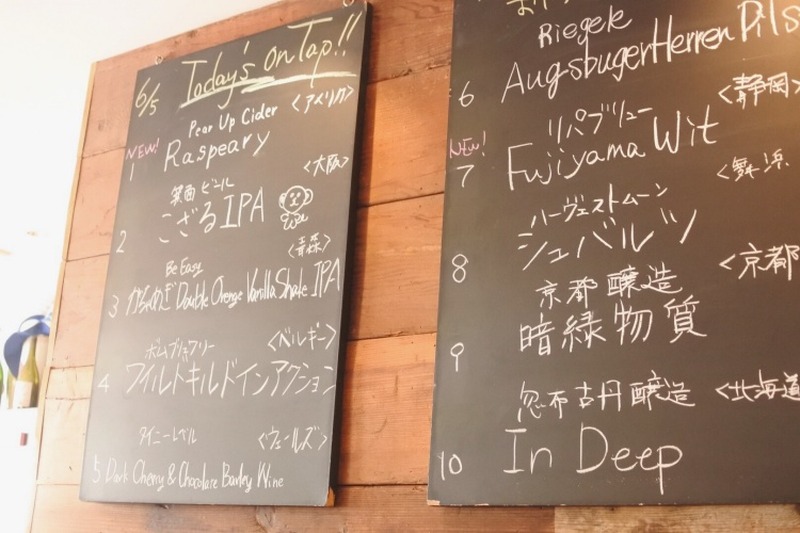 6/5 Today's on Tap!!
Pear Up Cider <アメリカ>
NEW! 1 Raspeary
<大阪>
箕面ビール
2 こざるIPA
<青森>
Be Easy
3 Double Orenge Vanilla Shake IPA
<ベルギー>
4 ワイルドキルドインアクション
タイニーレベル <ウェールズ>
5 Dark Cherry & Chocolare Barley Wine
Riegele
6 AugsbugerHerren Pils
<静岡>
リパブリュー
NEW! 7 Fujiyama Wit
<舞浜
ハーヴェストムーン
8 シュバルツ
<京都
京都醸造
9 暗緑物質
忽布古丹醸造 <北海道
10 In Deep